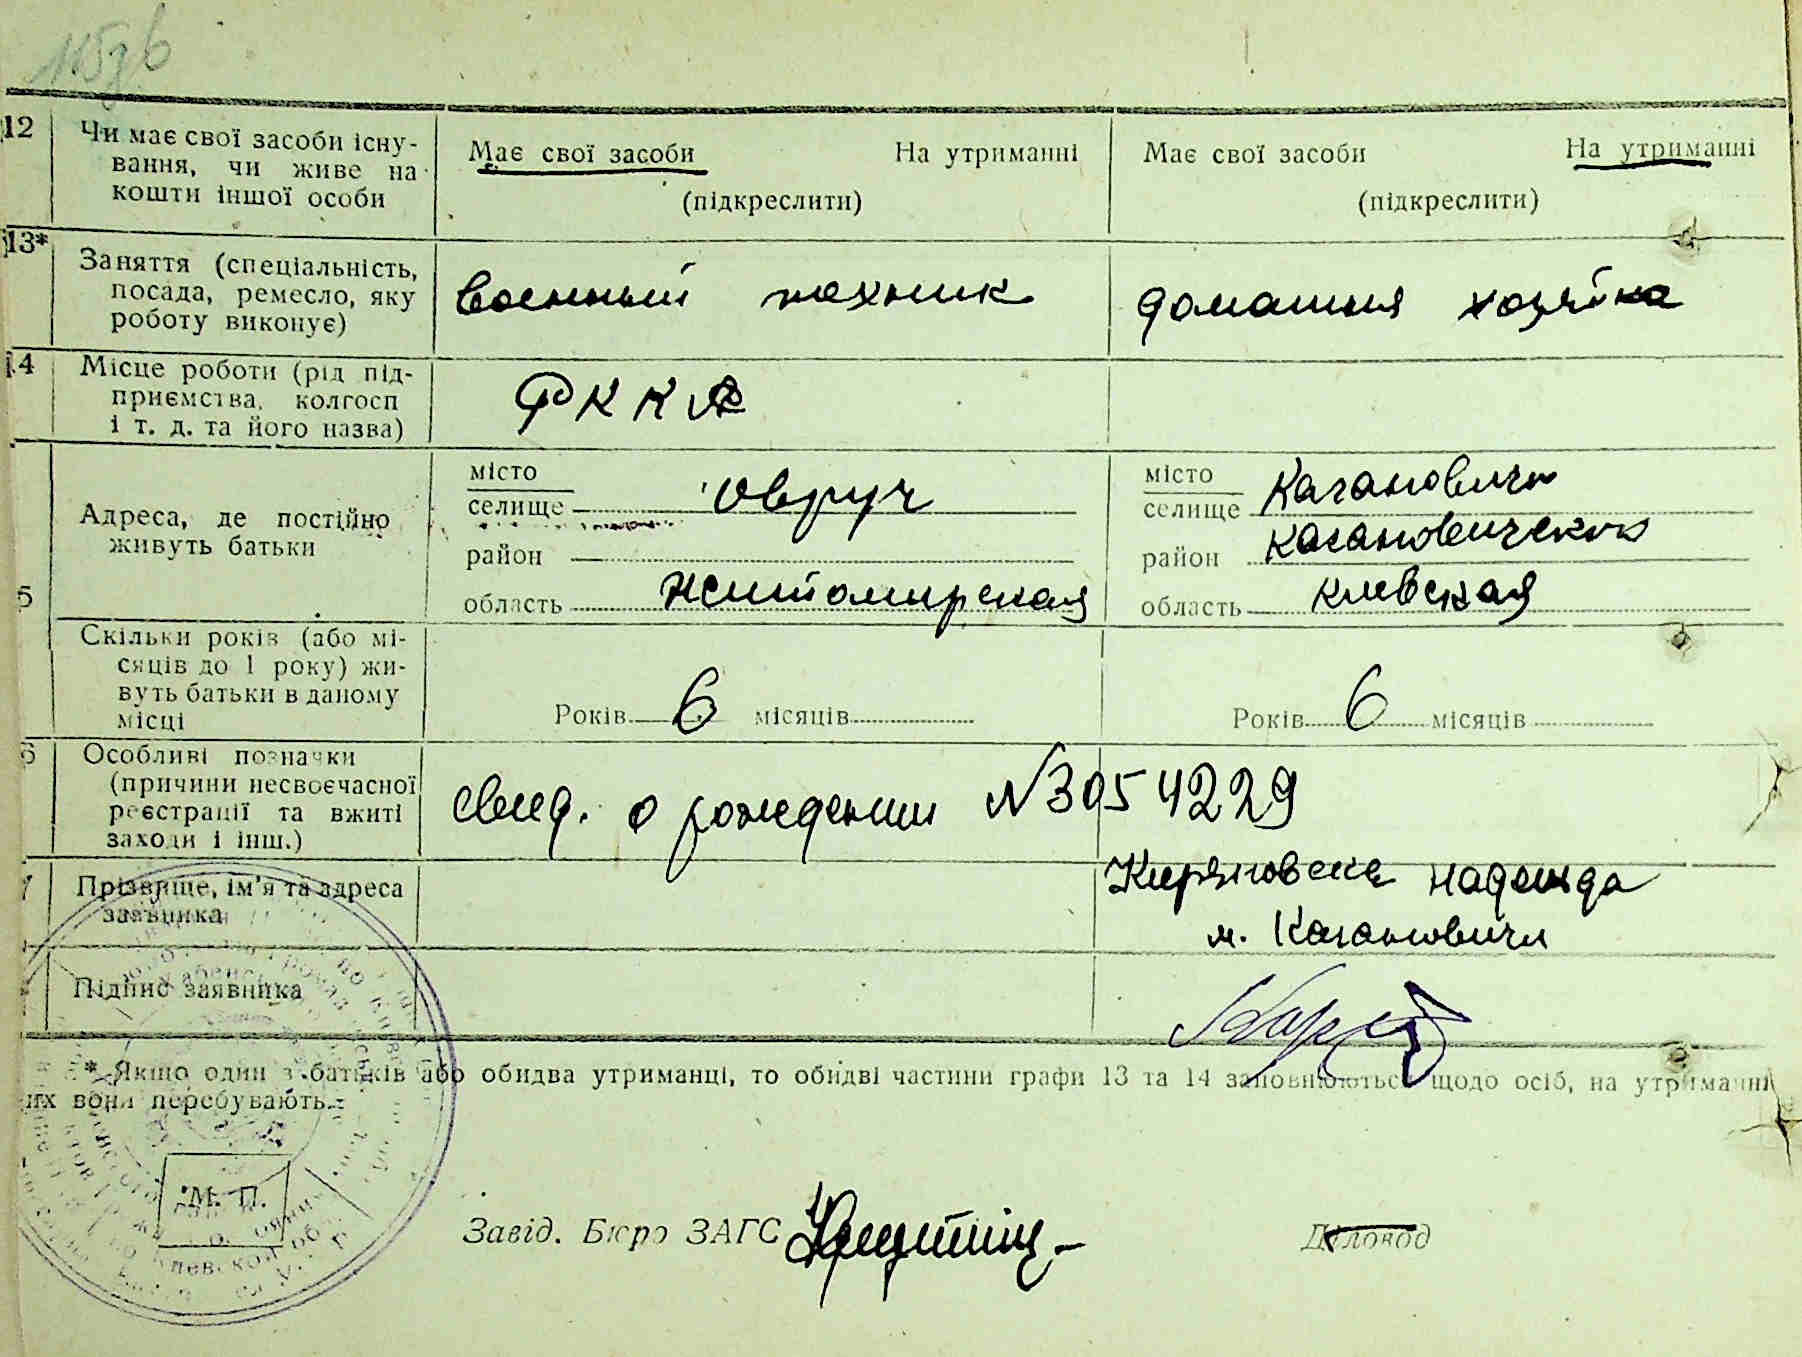 12 Чи має свої засоби існу-
вання, чи живе на
кошти іншої особи
Має свої засоби На утриманні
(підкреслити)
Має свої засоби На утриманні
(підкреслити)
13* Заняття (спеціальність,
посада, ремесло, яку
роботу виконує)
военный техник
домашняя хозяйка
14 Місце роботи (рід під-
приємства, колгосп
і т. д. та його назва)
РККА
5 Адреса, де постійно
живуть батьки
місто
селище Овруч
район
область Житомирская
місто
селище Кагановичи
район Кагановического
область Киевская
Скільки років (або мі-
сяців до 1 року) жи-
вуть батьки в даному
місці
Років 6 місяців
Років 6 місяців
6 Особливі позначки
(причини несвоєчасної
реєстрації та вжиті
заходи і інш.)
свид. о рождении №3054229
7 Прізвище, ім'я та адреса
заявника
надежда
м. Кагановичи
Підпис заявника
* Якщо один з батьків або обидва утриманці, то обидві частини графи 13 та 14 заповнюються щодо осіб, на утриманні
них вони перебувають.
М. П.
Завід. Бюро ЗАГС
Діловод